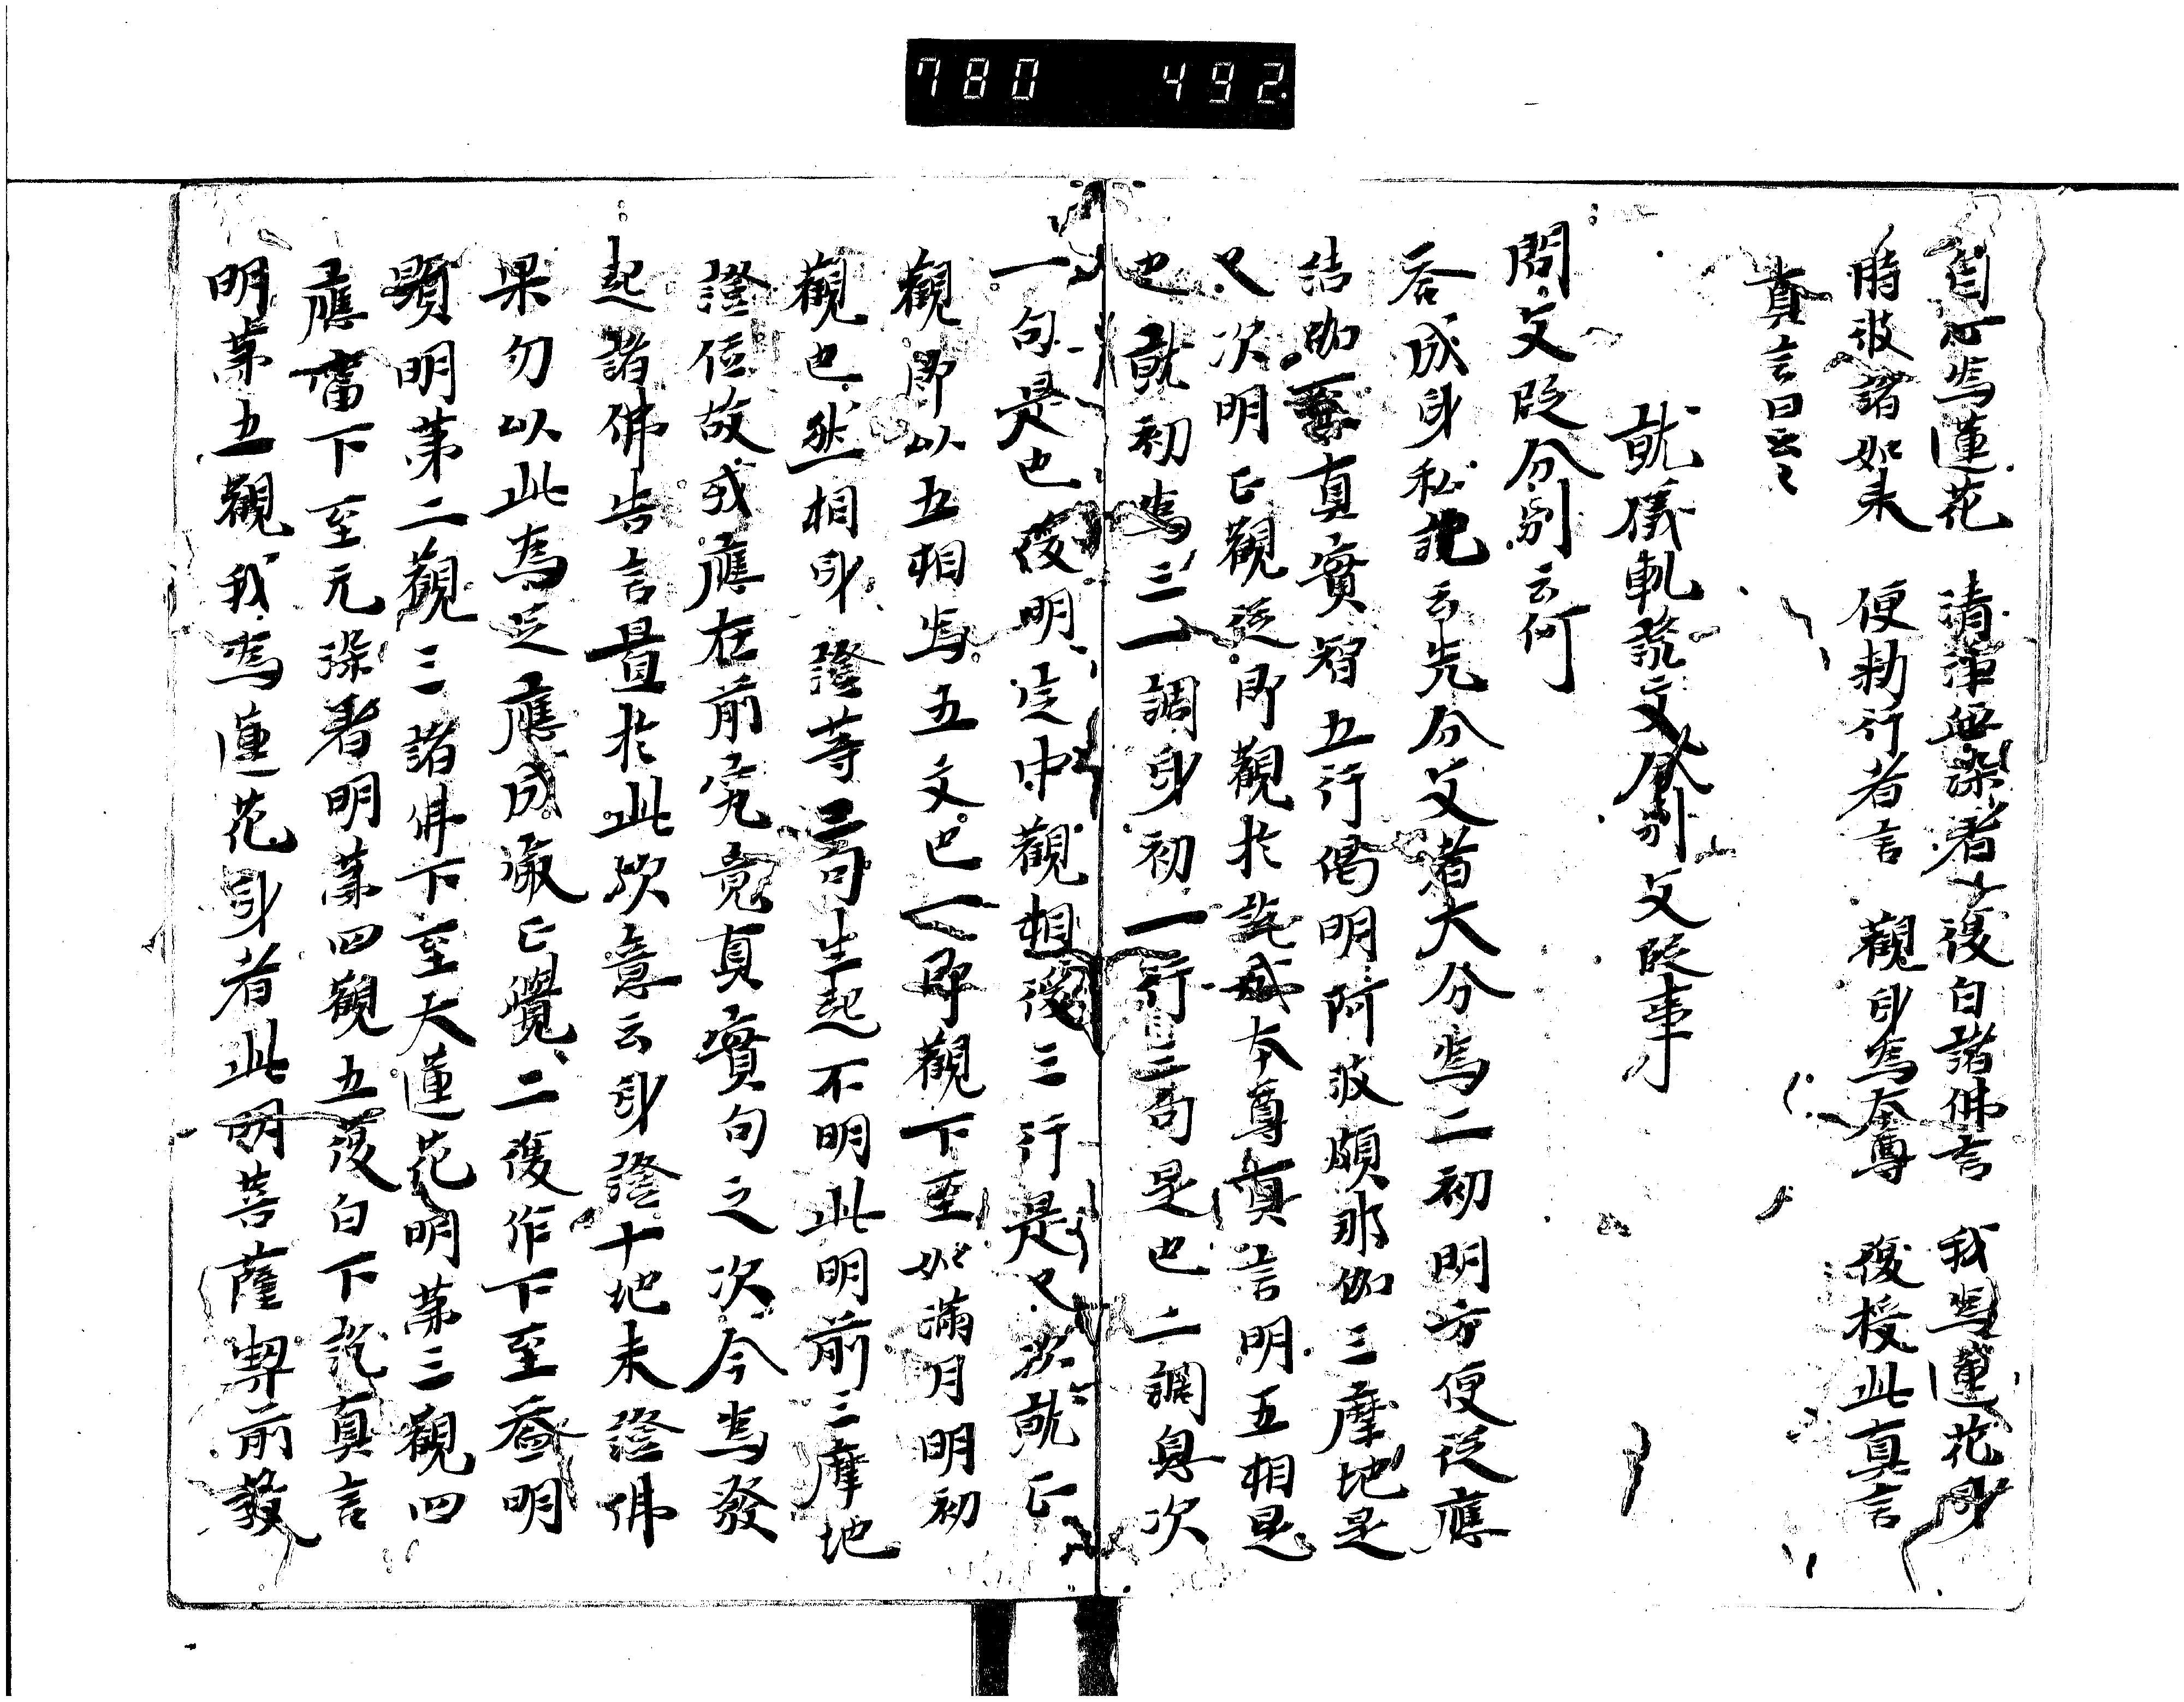 780 492
自心為蓮花 清淨無染者 復白諸佛言 我為蓮花身
時彼諸如来 便勅行者言 觀身為本尊 復授此真言
真言曰云々
就儀軌䟽文分別文段事
問文段分別云何
答成身私記云先分文者大分為二初明方便從應
結跏下真實智五行偈明阿娑頗那伽三摩地是
也次明正觀從即觀於訖成本尊真言明五相是
也就初為三一調身初一行三句是也二調息次
一句是也後明定中觀想後三行是也次就正
觀即以五相為五文也一即觀下至如滿月明初
觀也然相身證等三句生起不明此明前三摩地
證位故或應在前究竟真實句之次今為發
起諸佛告言置於此歟意云身證十地未證佛
果勿以此為足應成淑正覺二復作下至喬明
顕明第二觀三諸佛下至大蓮花明第三觀四
應當下至无染著明第四觀五復白下訖真言
明第五觀我為蓮花身者此明菩薩界前教